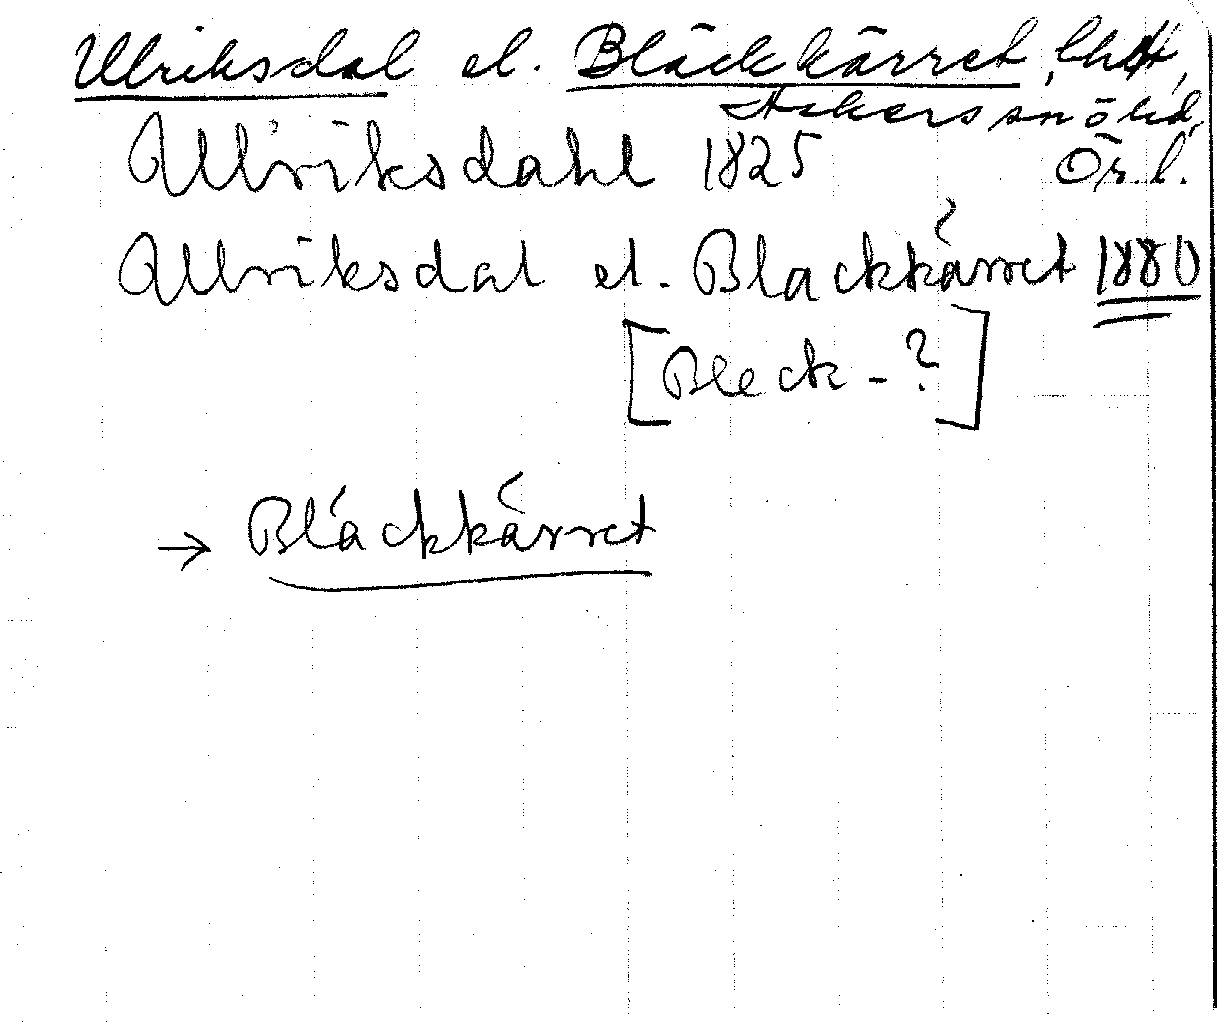 Ulriksdal el. Bläckkärret, lht,
Askers sn ö hd,
Ulriksdahl 1825 Ör. l.
Ulriksdal el. Blackkärret 1880
[Bleck-?]
→ Bläckkärret